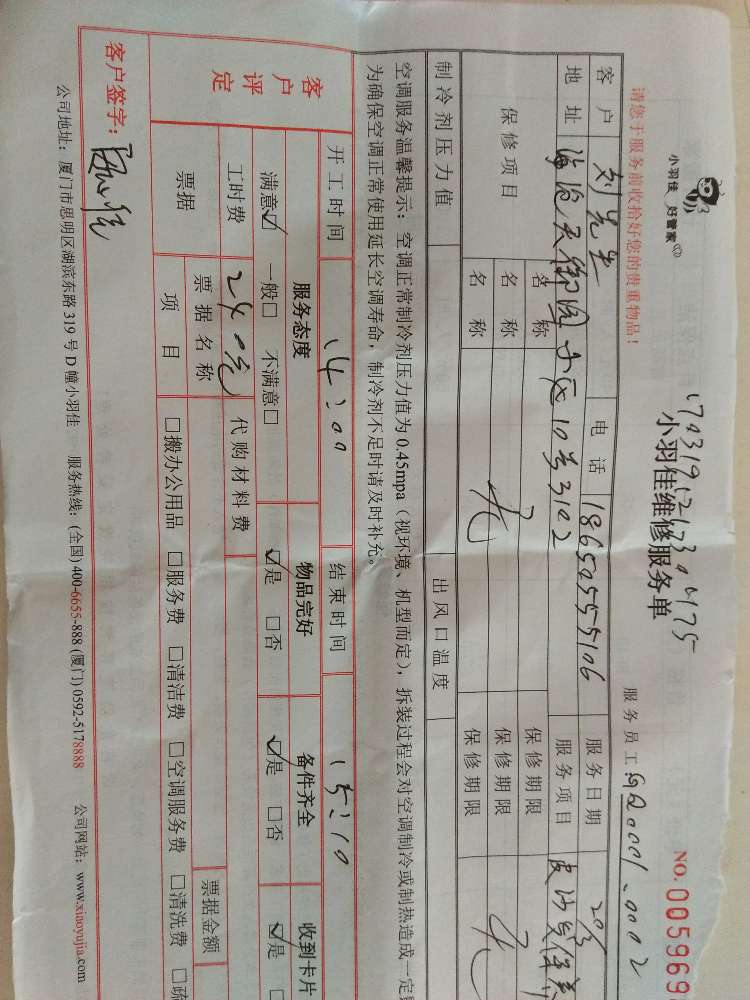 小羽佳 好管家
小羽佳维修服务单
NO. 005969
请您于服务前收拾好您的贵重物品!
服务员工
客户 刘先生 电话 18650555106 服务日期
地址 海沧天御花园小区10号3102 服务项目
保修项目 名称 无 保修期限 无
名称 保修期限
名称 保修期限
制冷剂压力值 出风口温度
空调服务温馨提示:空调正常制冷剂压力值为0.45mpa(视环境、机型而定),拆装过程会对空调制冷或制热造成一定
为确保空调正常使用延长空调寿命,制冷剂不足时请及时补充。
开工时间 14:00 结束时间 15:10
客户评定 服务态度 物品完好 备件齐全 收到卡片
满意☑ 一般□ 不满意□ ☑是 □否 ☑是 □否 ☑是
工时费 240元 代购材料费
票据 票据名称 票据金额
项目 □搬办公用品 □服务费 □清洁费 □空调服务费 □清洗费 □疏
客户签字:
公司地址:厦门市思明区湖滨东路319号D幢小羽佳 服务热线:(全国)400-6655-888 (厦门)0592-5178888 公司网站:www.xiaoyujia.com